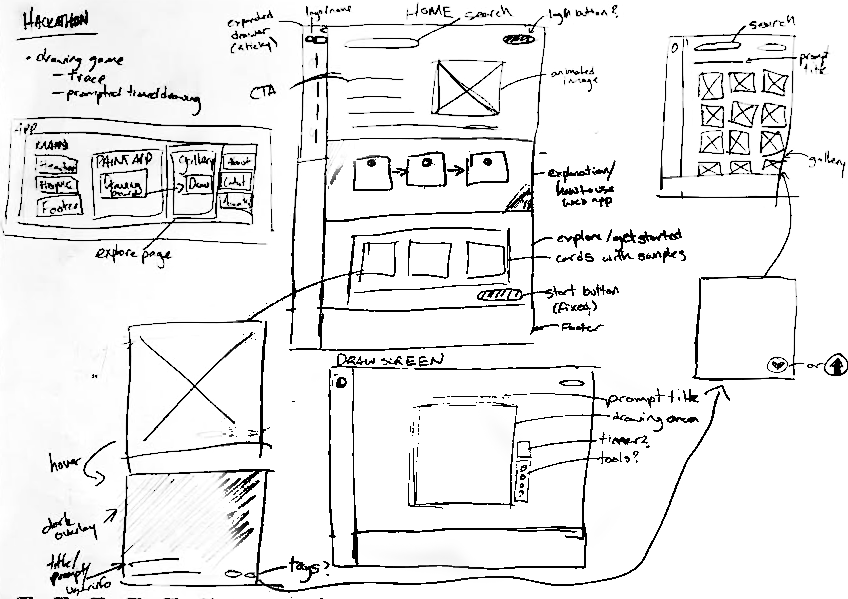 HACKATHON
• drawing game
– trace
– prompted timed drawing
APP
MAIN
Header
Home
Footer
PAINT APP
Drawing
board
Gallery
Draw
About
explore page
HOME
logo/name
expanded
drawer
(sticky)
search
login button?
CTA
animated
image
explanation/
how to use
web app
explore/get started
cards with samples
start button
(fixed)
Footer
search
prompt
title
gallery
or
hover
dark
overlay
title/
prompt/
user info
tags?
DRAW SCREEN
prompt title
drawing area
timer?
tools?